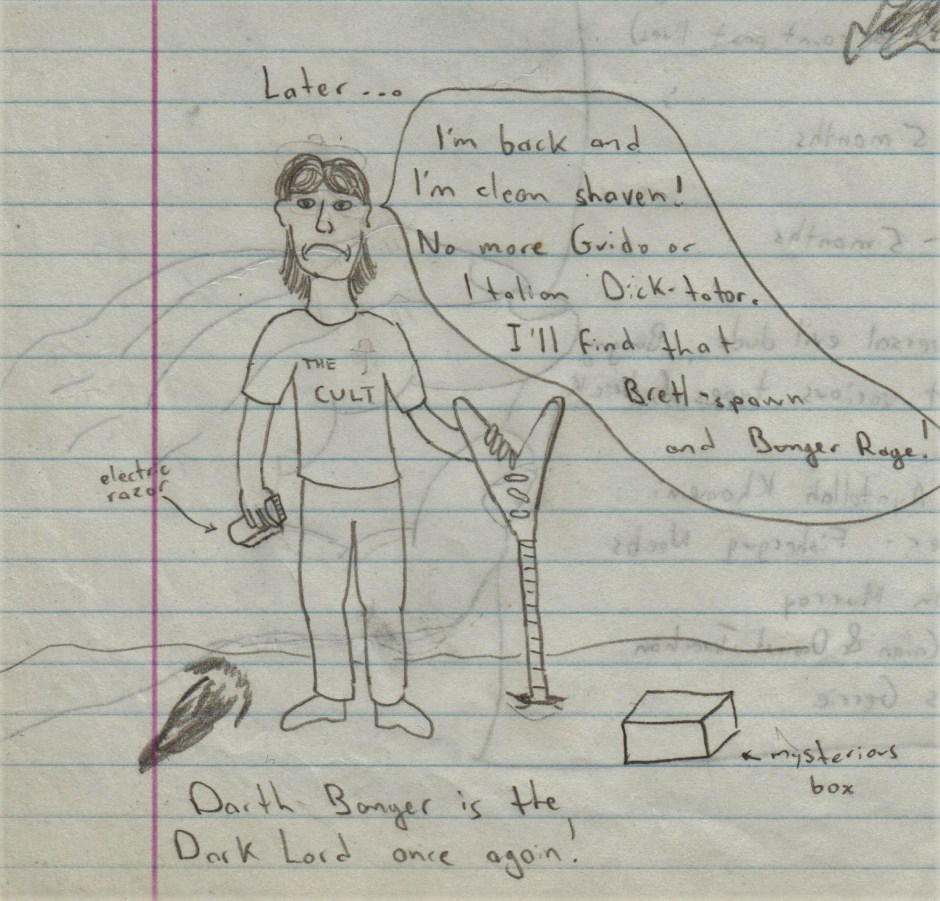 Later...
I'm back and
I'm clean shaven!
No more Guido or
Italian Dick-tator.
I'll find that
Brett-spawn
and Banger Rage!
THE
CULT
electric
razor
mysterious
box
Darth Banger is the
Dark Lord once again!